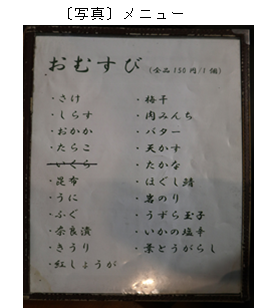 〔写真〕メニュー
おむすび (全品150円/1個)
・さけ
・しらす
・おかか
・たらこ
・いくら
・昆布
・うに
・ふぐ
・奈良漬
・きうり
・紅しょうが
・梅干
・肉みんち
・バター
・天かす
・たかな
・ほぐし鯖
・岩のり
・うずら玉子
・いかの塩辛
・葉とうがらし